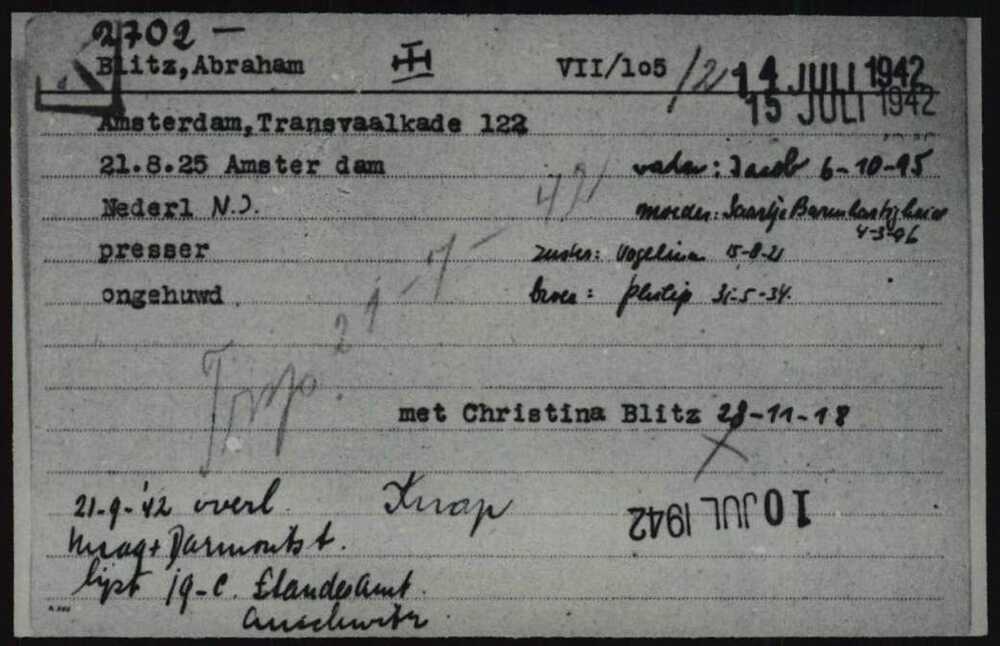 2702 —
Blitz, Abraham VII/105 /2 14 JULI 1942
15 JULI 1942
Amsterdam, Transvaalkade 122
21.8.25 Amster dam vader: Jacob 6-10-95
Nederl N.I. moeder: Saartje
4-3-96
presser zuster: Vogelina 15-8-21
ongehuwd broer: Philip 31-5-34.
21-7-42
met Christina Blitz 28-11-18
21-9-'42 overl. Knap
10 JUL 1942
lijst 19-C. Standesamt.
Auschwitz.